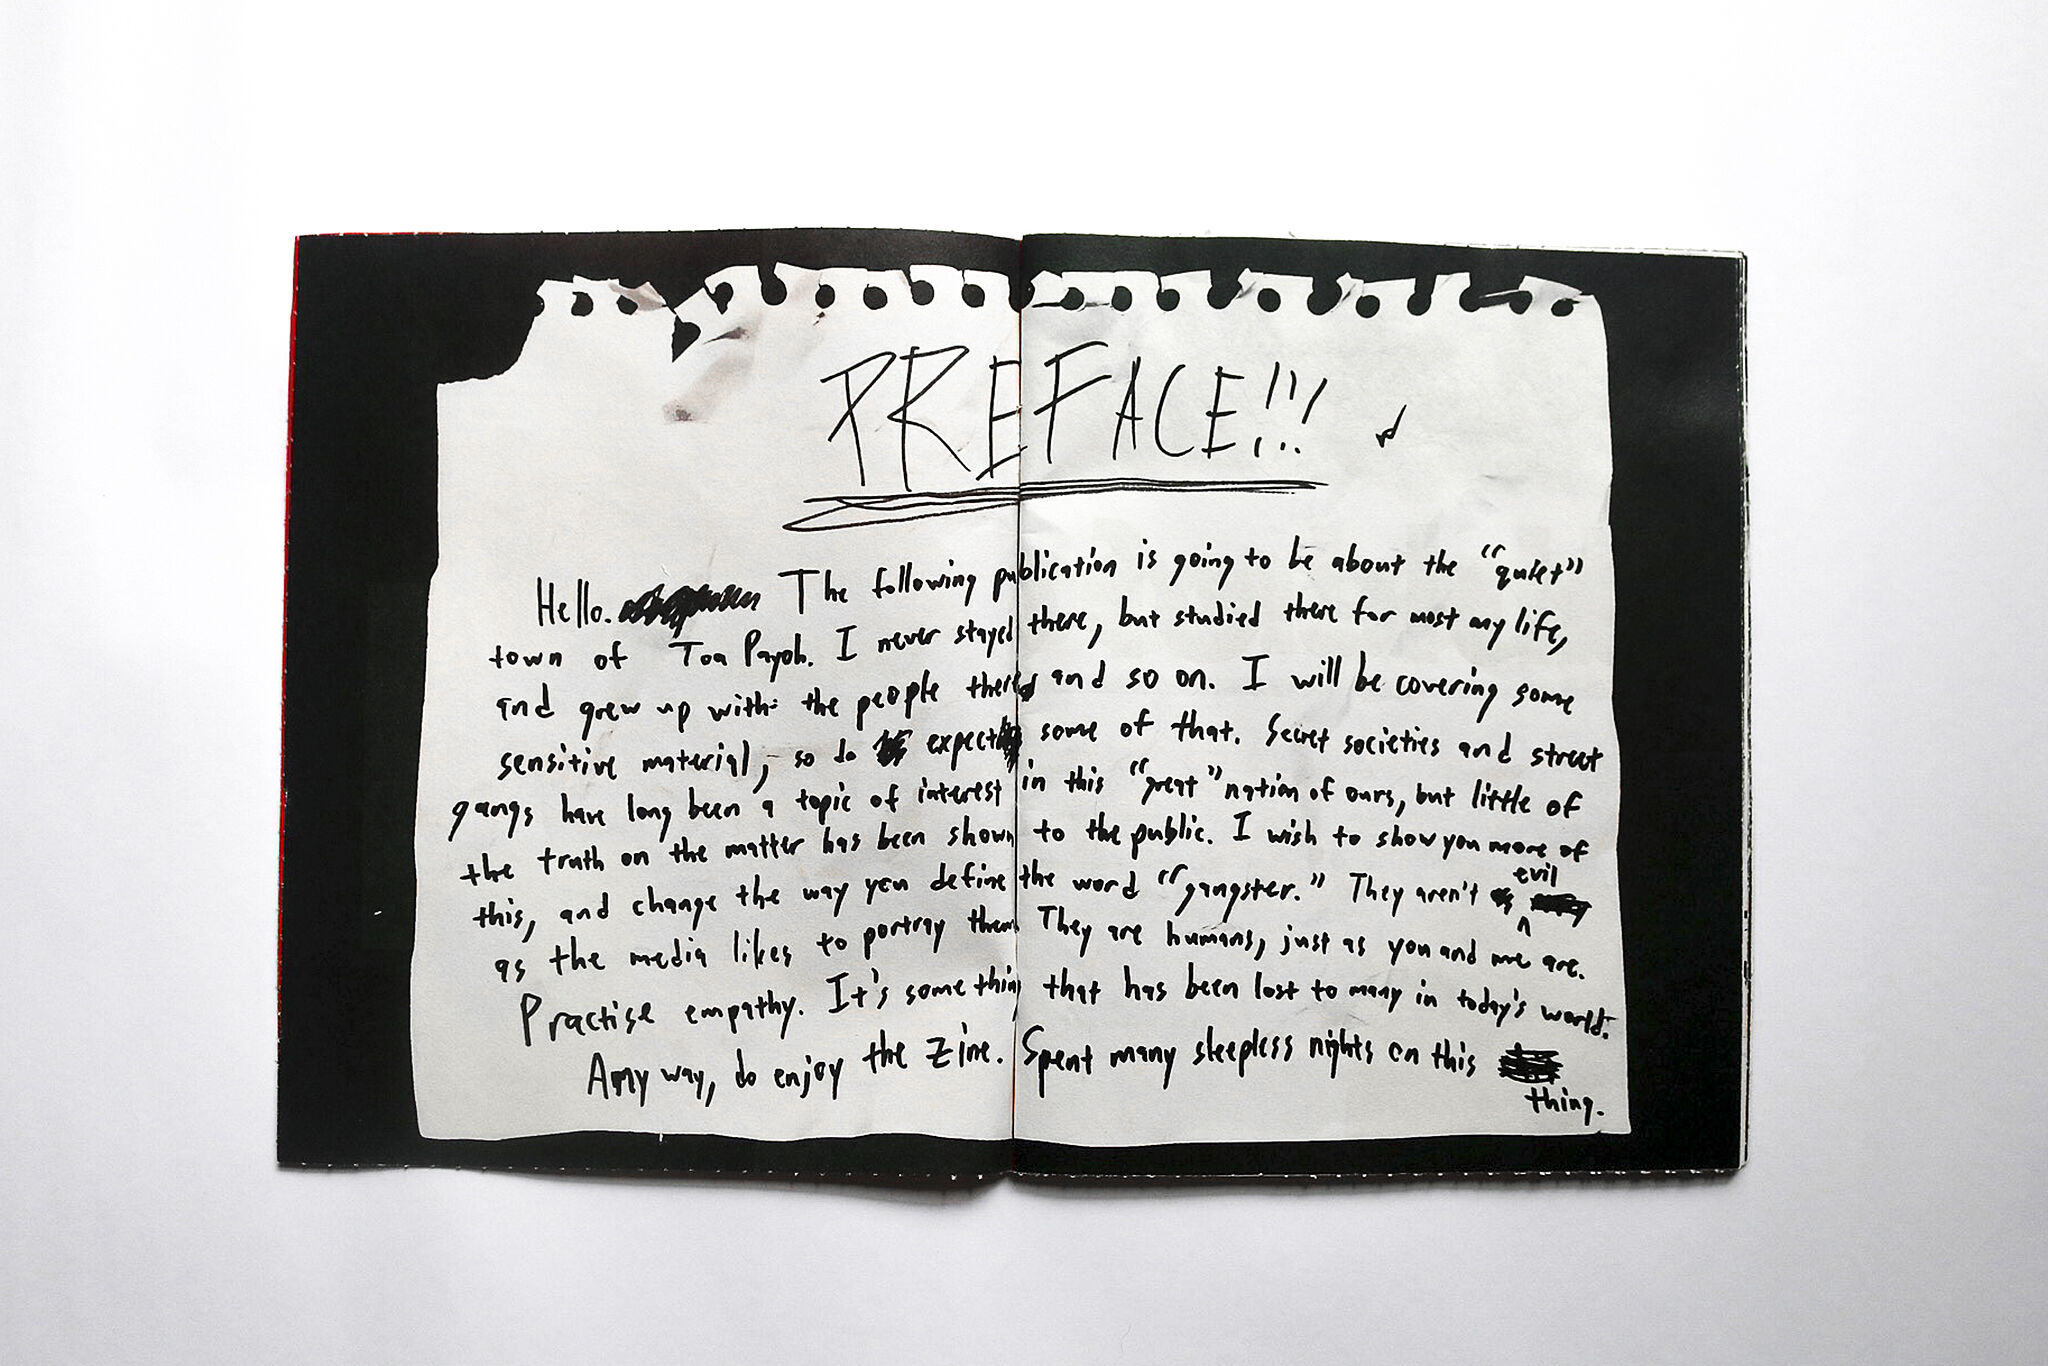 PREFACE!!!
Hello. The following publication is going to be about the “quiet”
town of Toa Payoh. I never stayed there, but studied there for most my life,
and grew up with the people there and so on. I will be covering some
sensitive material, so do expect some of that. Secret societies and street
gangs have long been a topic of interest in this “great” nation of ours, but little of
the truth on the matter has been shown to the public. I wish to show you more of
this, and change the way you define the word “gangster.” They aren't evil
as the media likes to portray them. They are humans, just as you and me are.
Practise empathy. It's something that has been lost to many in today's world.
Anyway, do enjoy the zine. Spent many sleepless nights on this
thing.